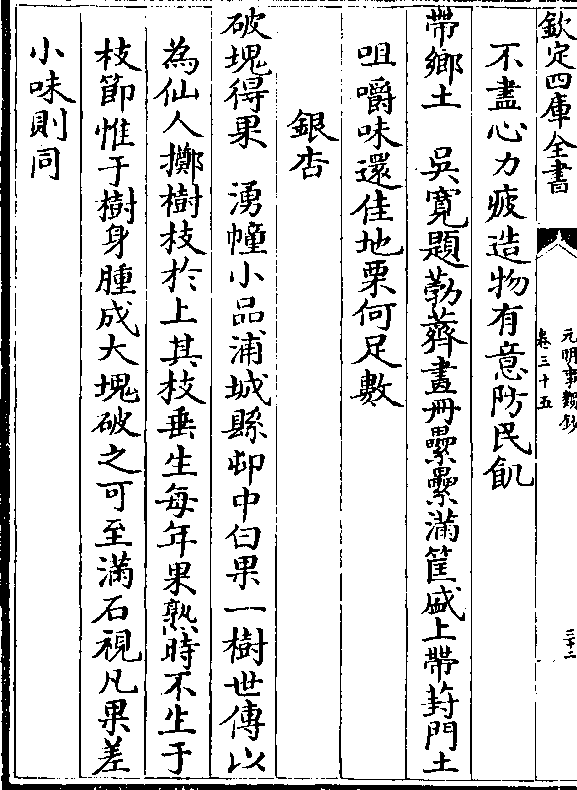 欽定四庫全書
元明事類鈔
卷三十五
三十二
不盡心力疲造物有意防民飢
帶鄉土　吳寬題荸薺畫冊纍纍滿筐盛上帶葑門土
咀嚼味還佳地栗何足數
銀杏
破塊得果　湧幢小品浦城縣邨中白果一樹世傳以
為仙人擲樹枝於上其枝垂生每年果熟時不生于
枝節惟于樹身腫成大塊破之可至滿石視凡果差
小味則同